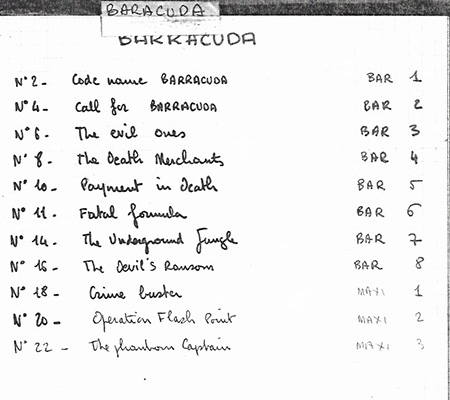 BARACUDA
BARRACUDA
N° 2 - Code name BARRACUDA BAR 1
N° 4 - Call for BARRACUDA BAR 2
N° 6 - The evil ones BAR 3
N° 8 - The Death Merchants BAR 4
N° 10 - Payment in Death BAR 5
N° 11 - Fatal formula BAR 6
N° 14 - The Underground Jungle BAR 7
N° 16 - The Devil's Ransom BAR 8
N° 18 - Crime buster MAXI 1
N° 20 - Operation Flash Point MAXI 2
N° 22 - The phantom Captain MAXI 3